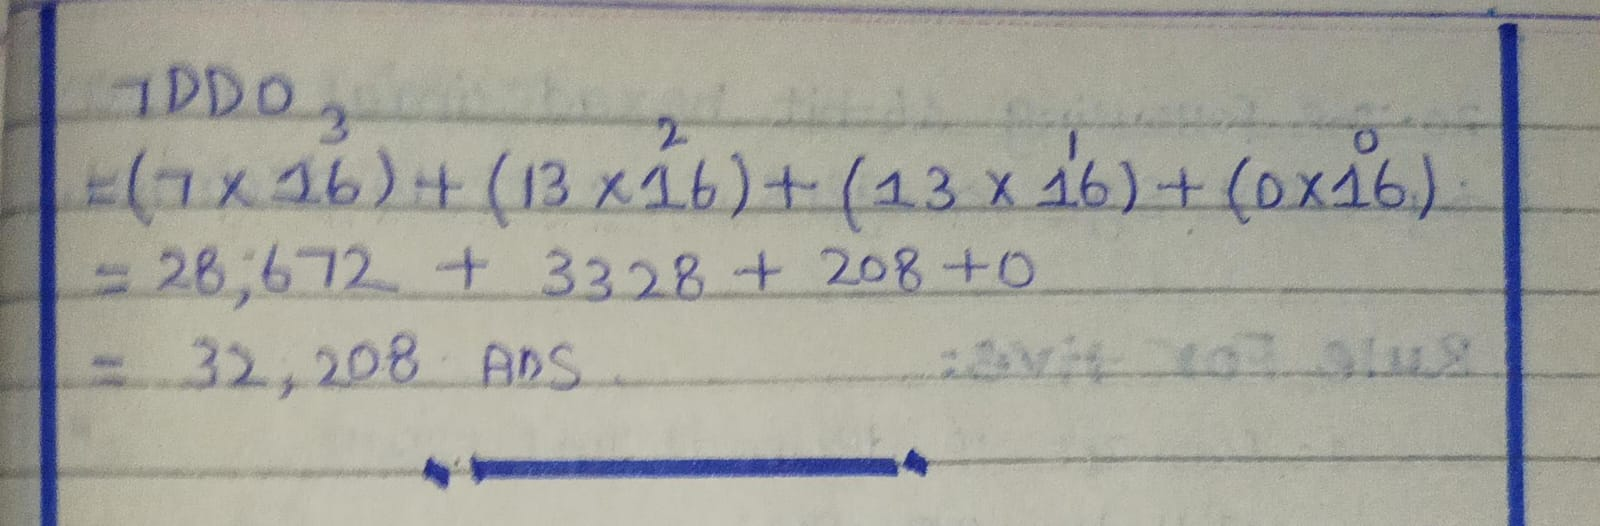 7DD0
=(7 x 16³) + (13 x 16²) + (13 x 16¹) + (0x16⁰)
= 28,672 + 3328 + 208 +0
= 32,208 ANS.